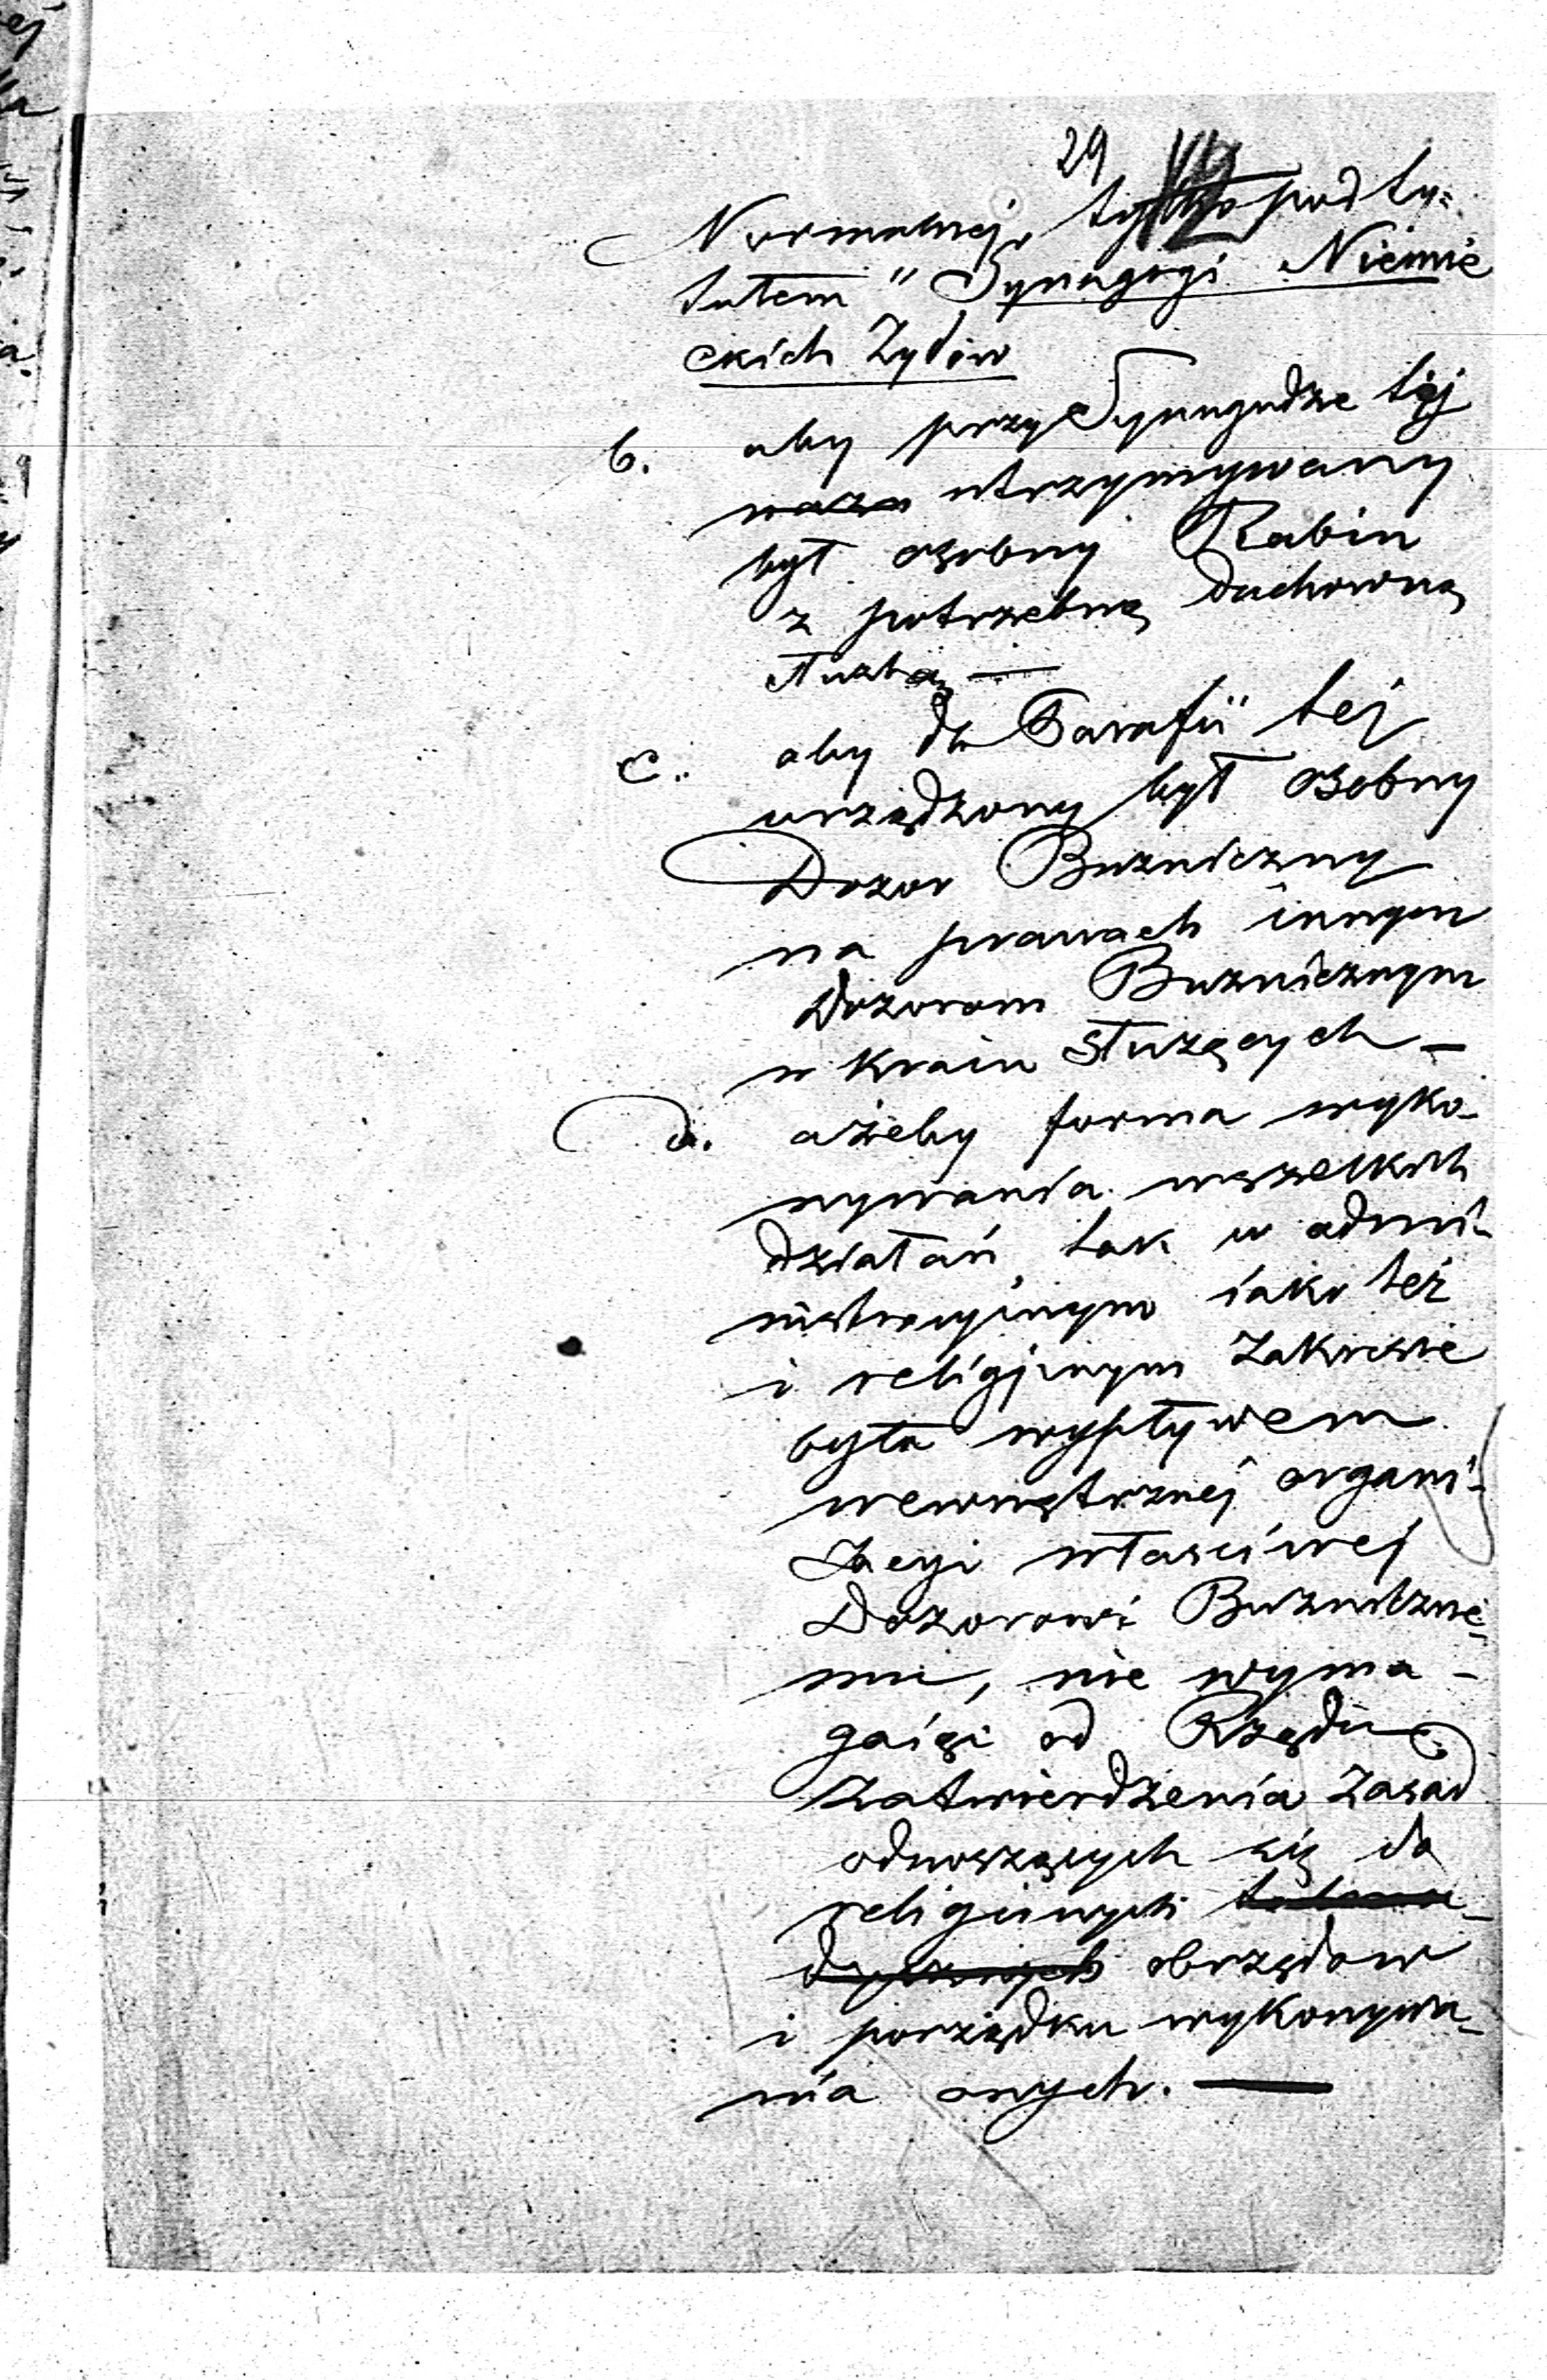 29
Normalnej, tylko pod ty=
tułem "Synagogi Niemie
ckich Żydów
b. aby przy Synagodze tej
utrzymywany
był osobny Rabin
z potrzebną duchowną
służbą —
c. aby dla Parafii tej
urządzony był osobny
Dozor Bużniczny
na prawach innym
Dozorom Bużnicznym
w kraiu służących —
d. ażeby forma wyko-
nywania wszelkich
działań, tak w admi-
nistracyjnym iako też
i religijnym zakresie
była wypływem
wewnętrznej organi-
zacyi właściwej
Dozorowi Bużniczne-
mu, nie wyma-
gaiąc od Rządu
zatwierdzenia zasad
odnoszących się do
religijnych
obrzędow
i porządku wykonywa-
nia onych. —